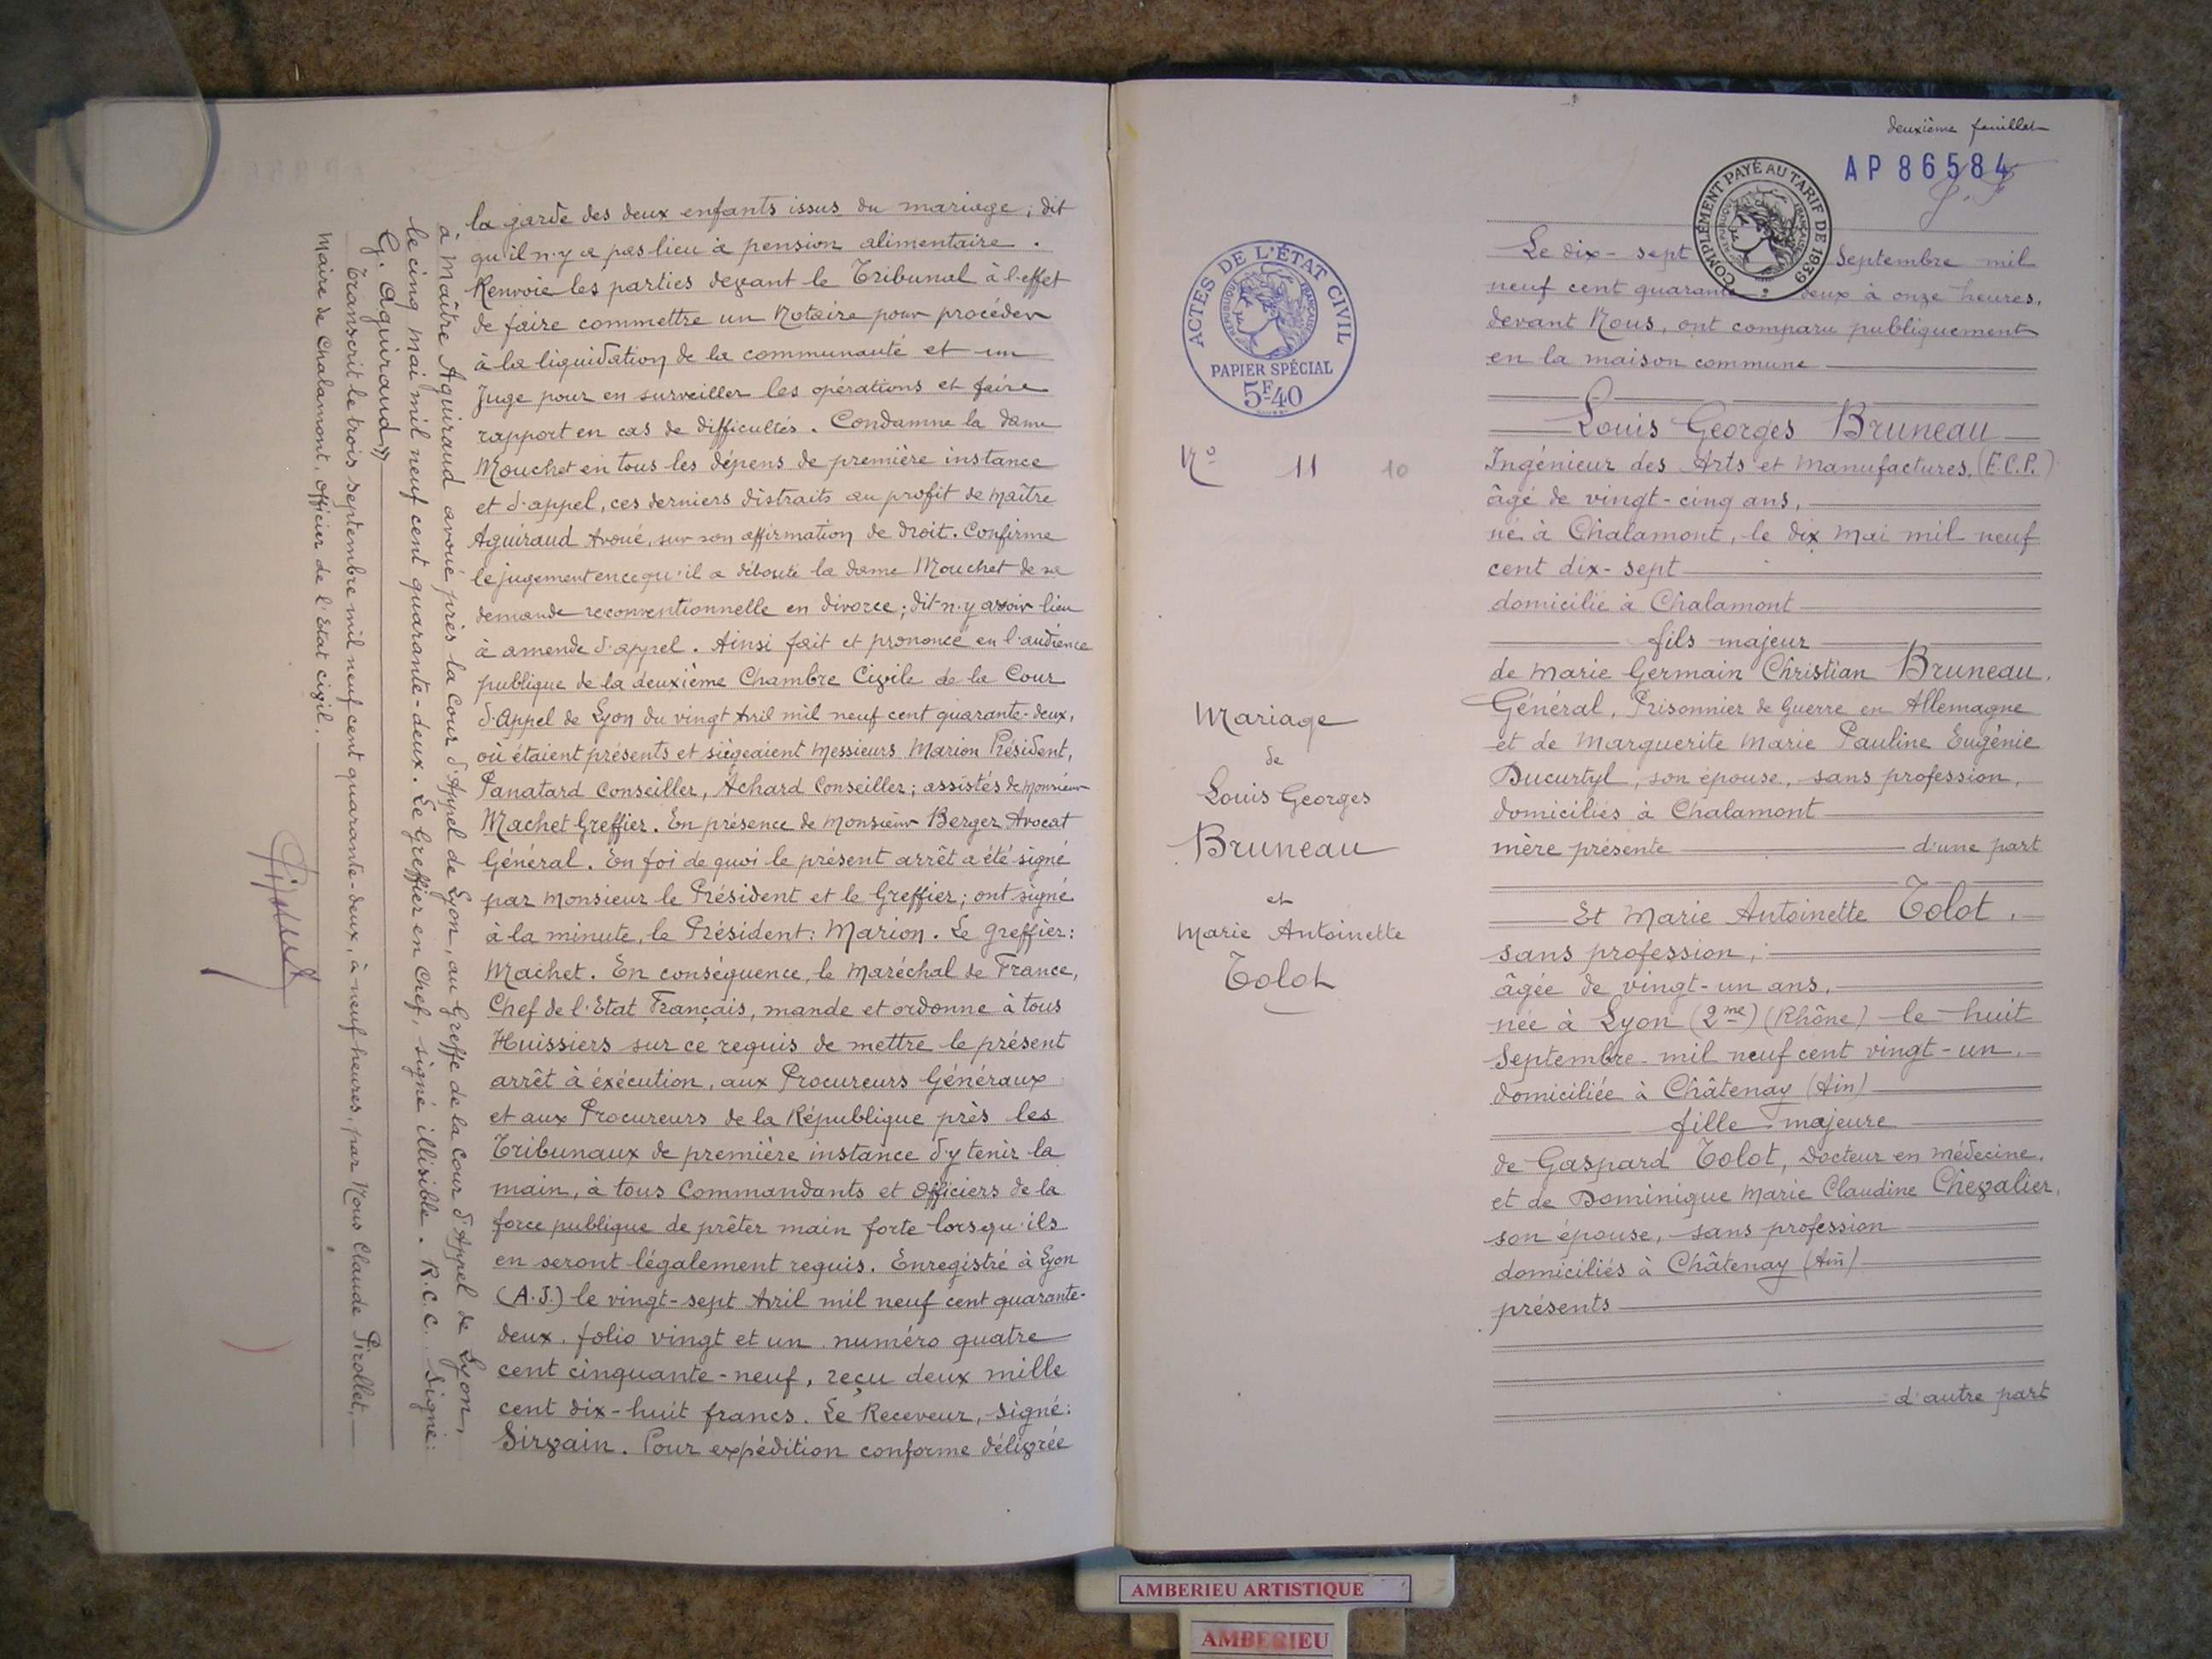 la garde des deux enfants issus du mariage ; dit
qu'il n'y a pas lieu à pension alimentaire .
Renvoie les parties devant le Tribunal à l'effet
de faire commettre un Notaire pour procéder
à la liquidation de la communauté et un
Juge pour en surveiller les opérations et faire
rapport en cas de difficultés . Condamne la dame
Mouchet en tous les dépens de première instance
et d'appel, ces derniers distraits au profit de Maître
Aguiraud Avoué, sur son affirmation de droit. Confirme
le jugement en ce qu'il a débouté la dame Mouchet de sa
demande reconventionnelle en divorce ; dit n'y avoir lieu
à amende d'appel . Ainsi fait et prononcé en l'audience
publique de la deuxième Chambre Civile de la Cour
d'Appel de Lyon du vingt Avril mil neuf cent quarante-deux,
où étaient présents et siégeaient Messieurs Marion Président,
Panatard Conseiller, Achard Conseiller ; assistés de Monsieur
Machet Greffier. En présence de Monsieur Berger Avocat
Général . En foi de quoi le présent arrêt a été signé
par Monsieur le Président et le Greffier ; ont signé
à la minute, le Président : Marion . Le Greffier :
Machet . En conséquence, le Maréchal de France,
Chef de l'Etat Français, mande et ordonne à tous
Huissiers sur ce requis de mettre le présent
arrêt à éxécution, aux Procureurs Généraux
et aux Procureurs de la République près les
Tribunaux de première instance d'y tenir la
main, à tous Commandants et Officiers de la
force publique de prêter main forte lorsqu'ils
en seront légalement requis . Enregistré à Lyon
(A.J.) le vingt-sept Avril mil neuf cent quarante-
deux . folio vingt et un . numéro quatre
cent cinquante-neuf, reçu deux mille
cent dix-huit francs . Le Receveur, signé :
Sirvain . Pour expédition conforme délivrée
à Maître Aguiraud avoué près la Cour d'Appel de Lyon, au Greffe de la Cour d'Appel de Lyon,
le cinq Mai mil neuf cent quarante-deux . Le Greffier en Chef, signé illisible . R.C.C. Signé :
G. Aguiraud »
Transcrit le trois septembre mil neuf cent quarante-deux, à neuf heures, par Nous Claude Pirollet,
Maire de Chalamont, officier de l'Etat civil .
deuxième feuillet
AP 86584
COMPLÉMENT PAYÉ AU TARIF DE 1939
RÉPUBLIQUE FRANÇAISE
ACTES DE L'ÉTAT CIVIL
RÉPUBLIQUE FRANÇAISE
PAPIER SPÉCIAL
5F40
N° 11 10
Mariage
de
Louis Georges
Bruneau
et
Marie Antoinette
Tolot
Le dix-sept Septembre mil
neuf cent quarante-deux à onze heures,
devant Nous, ont comparu publiquement
en la maison commune
Louis Georges Bruneau
Ingénieur des Arts et Manufactures, (E.C.P.)
âgé de vingt-cinq ans,
né à Chalamont, le dix Mai mil neuf
cent dix-sept
domicilié à Chalamont
fils majeur
de Marie Germain Christian Bruneau,
Général, Prisonnier de Guerre en Allemagne
et de Marguerite Marie Pauline Eugénie
Ducurtyl, son épouse, sans profession,
domiciliés à Chalamont
mère présente d'une part
Et Marie Antoinette Tolot,
sans profession,
âgée de vingt-un ans,
née à Lyon (2me) (Rhône) le huit
Septembre mil neuf cent vingt-un,
domiciliée à Châtenay (Ain)
fille majeure
de Gaspard Tolot, Docteur en médecine,
et de Dominique Marie Claudine Chevalier,
son épouse, sans profession
domiciliés à Châtenay (Ain)
présents
d'autre part
AMBERIEU ARTISTIQUE
AMBERIEU